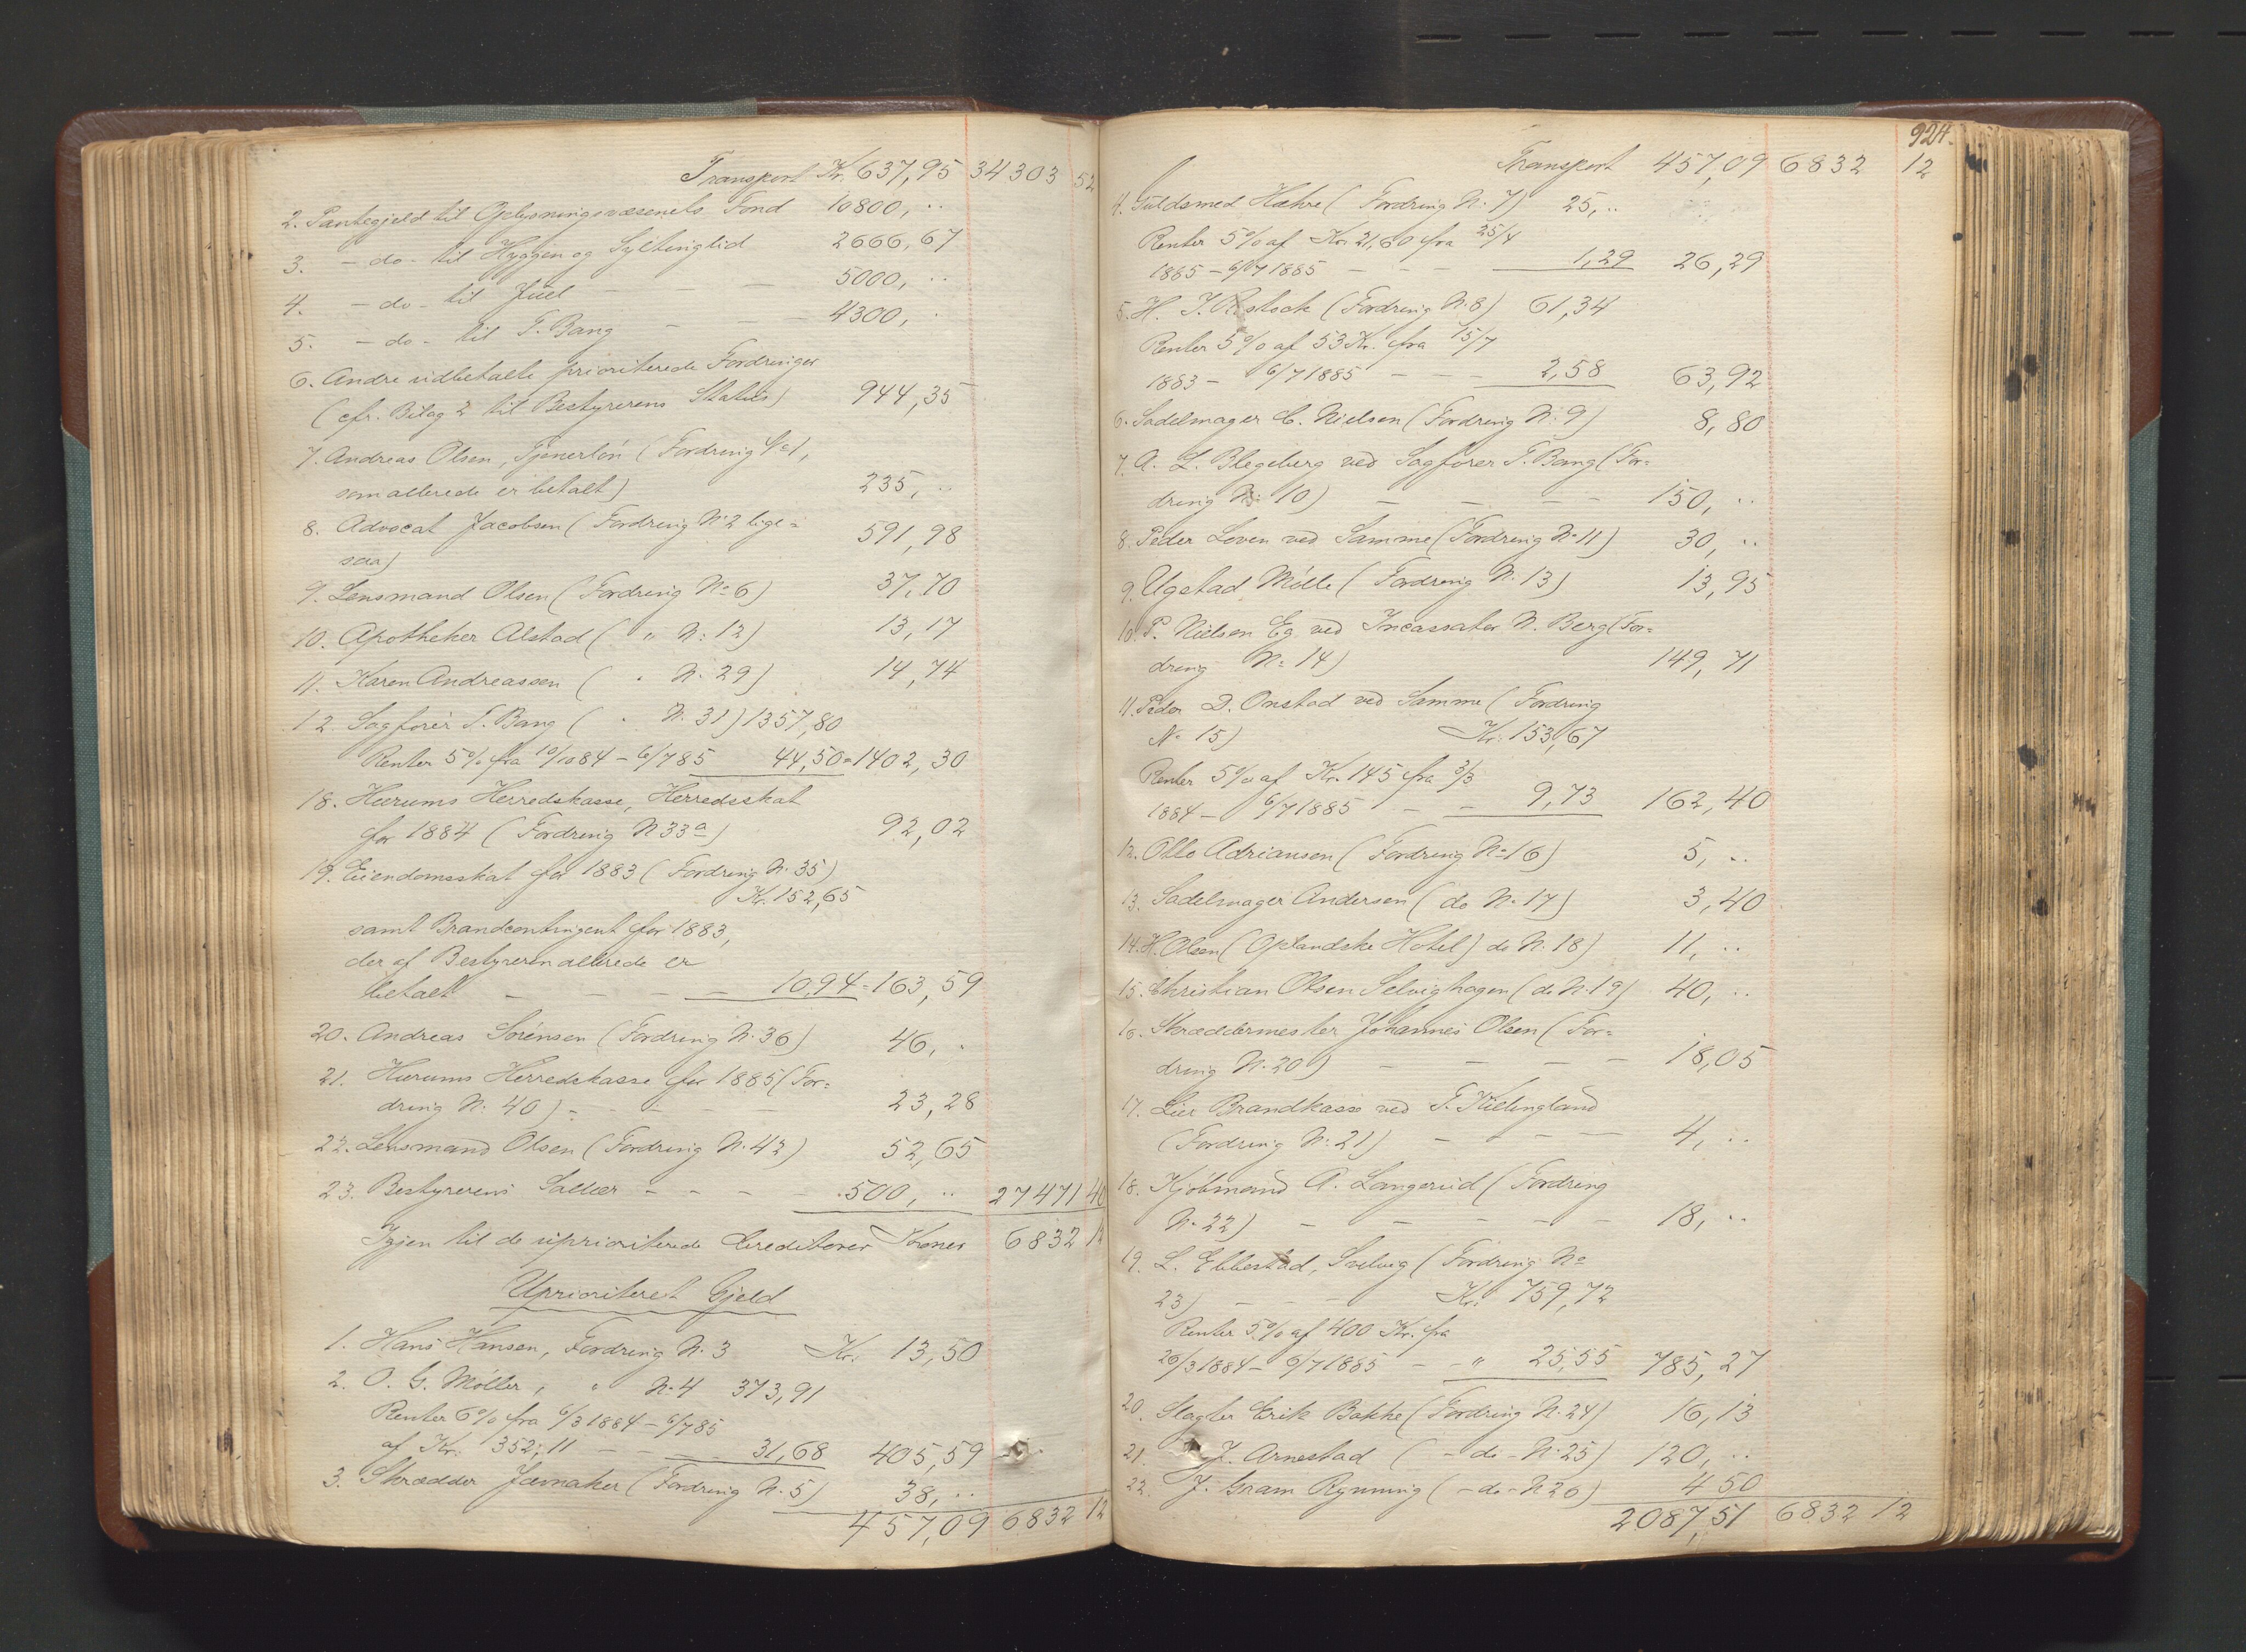 Transport Kr. 637,95 34303 52
2. Pantegjeld til Oplysningsvæsenets Fond 10800, ..
3. - do - til Hyggen og Syltinglid 2666,67
4. - do - til Juel - - - 5000, ..
5. - do - til T. Bang - - 4300, .
6. Andre udbetalte prioriterede Fordringer
(cfr. Bilag 2 til Bestyrerens Status) 944,35
7. Andreas Olsen, Tjenerløn (Fordring No 1,
som allerede er betalt) 235, ..
8. Advocat Jacobsen (Fordring No 2 lige=
saa) 591,98
9. Lensmand Olsen (Fordring No 6) 37,70
10. Apotheker Alstad ( " No 12) 13,17
11. Karen Andreassen ( " No 29) 14,74
12. Sagfører T. Bang ( " No 31) 1357,80
Renter 5% fra 10/10 84 - 6/7 85 44,50 = 1402,30
18. Hurums Herredskasse, Herredsskat
for 1884 (Fordring N 33 a) 92,02
19. Eiendomsskat for 1883 (Fordring No 35)
Kr. 152,65
samt Brandcontingent for 1883,
der af Bestyreren allerede er
betalt - - - - 10,94 = 163,59
20. Andreas Sørensen (Fordring No 36) 46, .
21. Hurums Herredskasse for 1885 (For=
dring No 40) - - - - 23,28
22. Lensmand Olsen (Fordring No 42) 52,65
23. Bestyrerens Sallær - - - - 500, .. 27471 40
Igjen til de uprioriterede Creditorer Kroner 6832 12
Uprioriteret Gjeld
1. Hans Hansen, Fordring No 3 Kr. 13,50
2. O. G. Møller, " No 4 373,91
Renter 6% fra 6/3 1884 - 6/7 85
af Kr. 352,11 - - - 31,68 405,59
3. Skrædder Jæmaker (Fordring No 5) 38, ..
457,09 6832 12
924.
Transport 457,09 6832 12
4. Guldsmed Hæhre (Fordring No 7) 25, ..
Renter 5% af Kr. 21,60 fra 25/4
1885 - 6/7 1885 - - - 1,29 26,29
5. H. J. Ristock (Fordring No 8) 61,34
Renter 5% af 53 Kr. fra 15/7
1883 - 6/7 1885 - - - 2,58 63,92
6. Sadelmager C. Nielsen (Fordring No 9) 8,80
7. A. L. Blegeberg ved Sagfører T. Bang (For=
dring No 10) - - - - 150, ..
8. Peder Loven ved Samme (Fordring No 11) 30, ..
9. Ugstad Mølle (Fordring No 13) 13,95
10. P. Nielsen Eg ved Incassator N. Berg (For=
dring No 14) 149,71
11. Peder D. Onstad ved Samme (Fordring
No 15) Kr. 153,67
Renter 5% af Kr. 145 fra 3/3
1884 - 6/7 1885 - - 9,73 162,40
12. Otto Adriansen (Fordring No 16) 5, ..
13. Sadelmager Andersen (do No 17) 3,40
14. H. Olsen (Oplandske Hotel) do No 18) 11, ..
15. Christian Olsen Selvighagen (do No 19) 40, ..
16. Skræddermester Johannes Olsen (For=
dring No 20) - - - - 18,05
17. Lier Brandkasse ved T. Kielingland
(Fordring No 21) - - - - 4, ..
18. Kjøbmand A. Langerud (Fordring
No 22) - - - - - - 18, ..
19. L. Ebbestad, Svelvig (Fordring No
23) - - - Kr. 759,72
Renter 5% af 400 Kr. fra
26/3 1884 - 6/7 1885 - - " 25,55 785,27
20. Slagter Erik Bakke (Fordring No 24) 16,13
21. J. Arnestad ( - do - No 25) 120, ..
22. J. Gram Rynning ( - do - N 26) 450
2087,51 6832 12